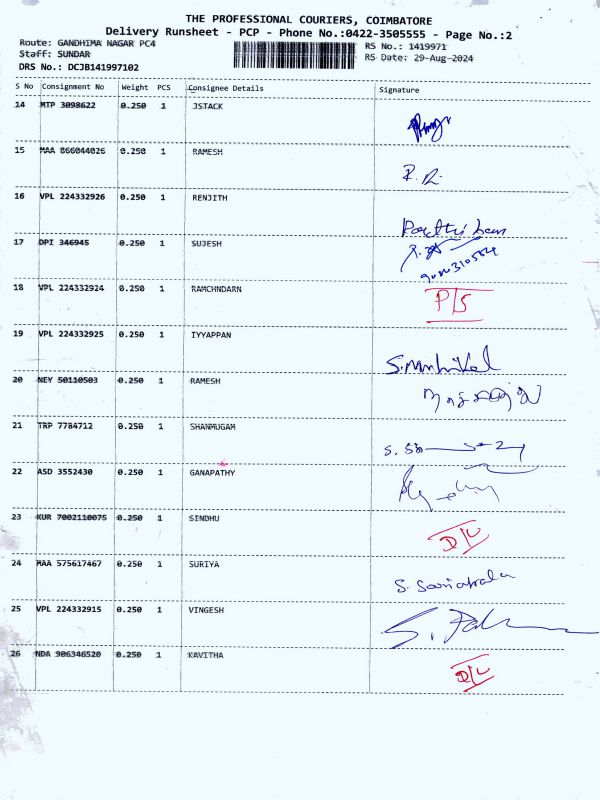 THE PROFESSIONAL COURIERS, COIMBATORE
Delivery Runsheet - PCP - Phone No.:0422-3505555 - Page No.:2
Route: GANDHIMA NAGAR PC4
Staff: SUNDAR
DRS No.: DCJB141997102
RS No.: 1419971
RS Date: 29-Aug-2024
S No Consignment No Weight PCS Consignee Details Signature
14 MTP 3098622 0.250 1 JSTACK
15 MAA 866044026 0.250 1 RAMESH
R. R.
16 VPL 224332926 0.250 1 RENJITH
17 DPI 346945 0.250 1 SUJESH
18 VPL 224332924 0.250 1 RAMCHNDARN P/S
19 VPL 224332925 0.250 1 IYYAPPAN
20 NEY 50110503 0.250 1 RAMESH
21 TRP 7784712 0.250 1 SHANMUGAM
22 ASD 3552430 0.250 1 GANAPATHY
23 KUR 7002110075 0.250 1 SINDHU D/L
24 MAA 575617467 0.250 1 SURIYA
25 VPL 224332915 0.250 1 VINGESH
26 NDA 906346520 0.250 1 KAVITHA D/L